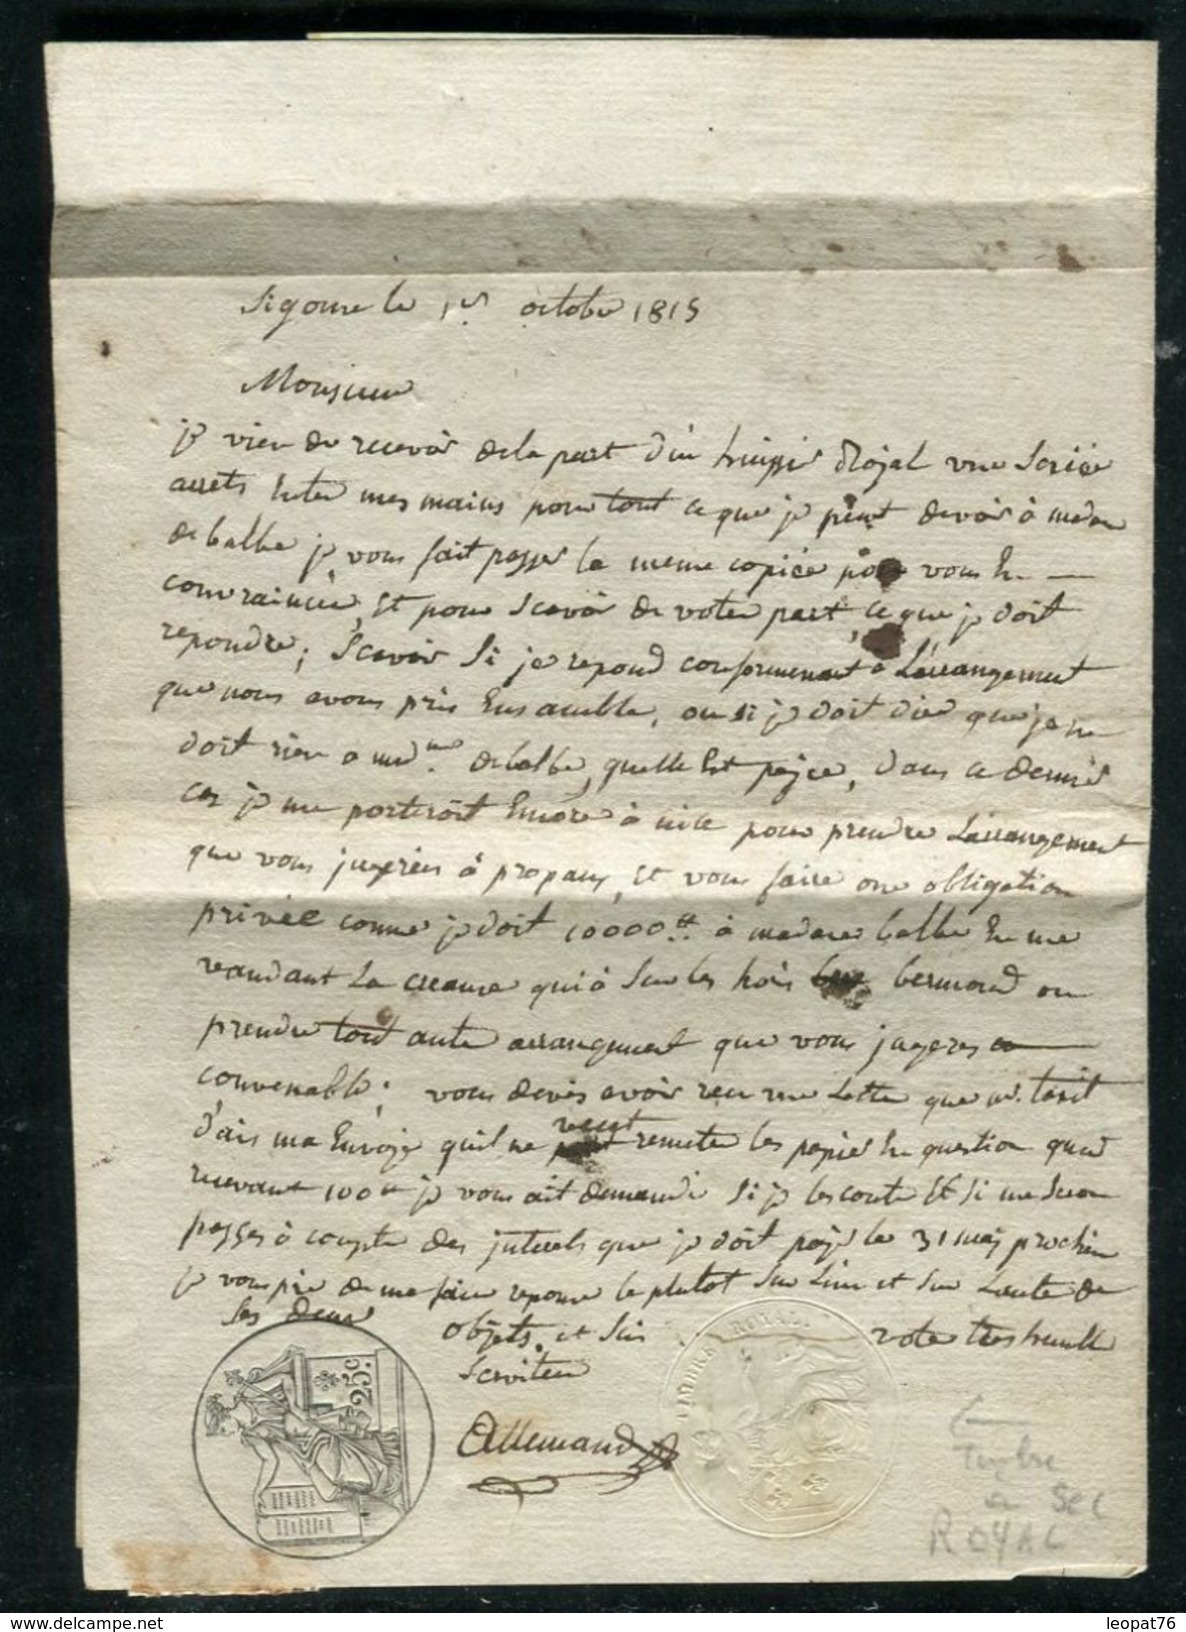 Sigonce le 1er octobre 1815
Monsieur
je vien de recevoir de la part d'un huissier Royal une Seisie
arrets entre mes mains pour tout ce que je peut devoir à madame
de balbe je vous fait passer la meme copiée pour vous en
convaincre, et pour Scavoir de votre part ce que je doit
repondre; Scavoir Si je repond conformement a L'arrangement
que nous avons pris Ensamble, ou si je doit dire que je ne
doit rien a madme de balbe, quelle est payée, dans ce dernier
cas je me porterôit Encore à pour prendre L'arrangement
que vous jugeries à propaux, et vous faire une obligation
privée comme je doit 10000tt à madame balbe En me
randant La creance qui à Sur les hoirs bermond ou
prendre tout autre arrangement que vous jugeres
convenable; vous devés avoir reçu une Lettre que mr.
d'ais ma Envoye quil ne veut remetre les papié En question quen
recevant 100tt je vous ait demandé Si je les conte Et Si me Seron
passes à compte des que je doit payé le 31 may prochin
je vous prie de me faire reponse le plutot Sur L'un et Sur L'autre de
Ses deux objets. et Suis votre tres humble
Serviteur
Allemand
25c.
TIMBRE ROYAL
Timbre
a Sec
ROYAL
www.delcampe.net
leopat76